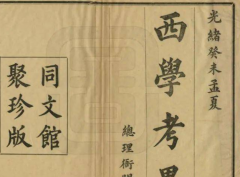 光緒癸未孟夏
西學考畧
總理衙門
同文館
聚珍版